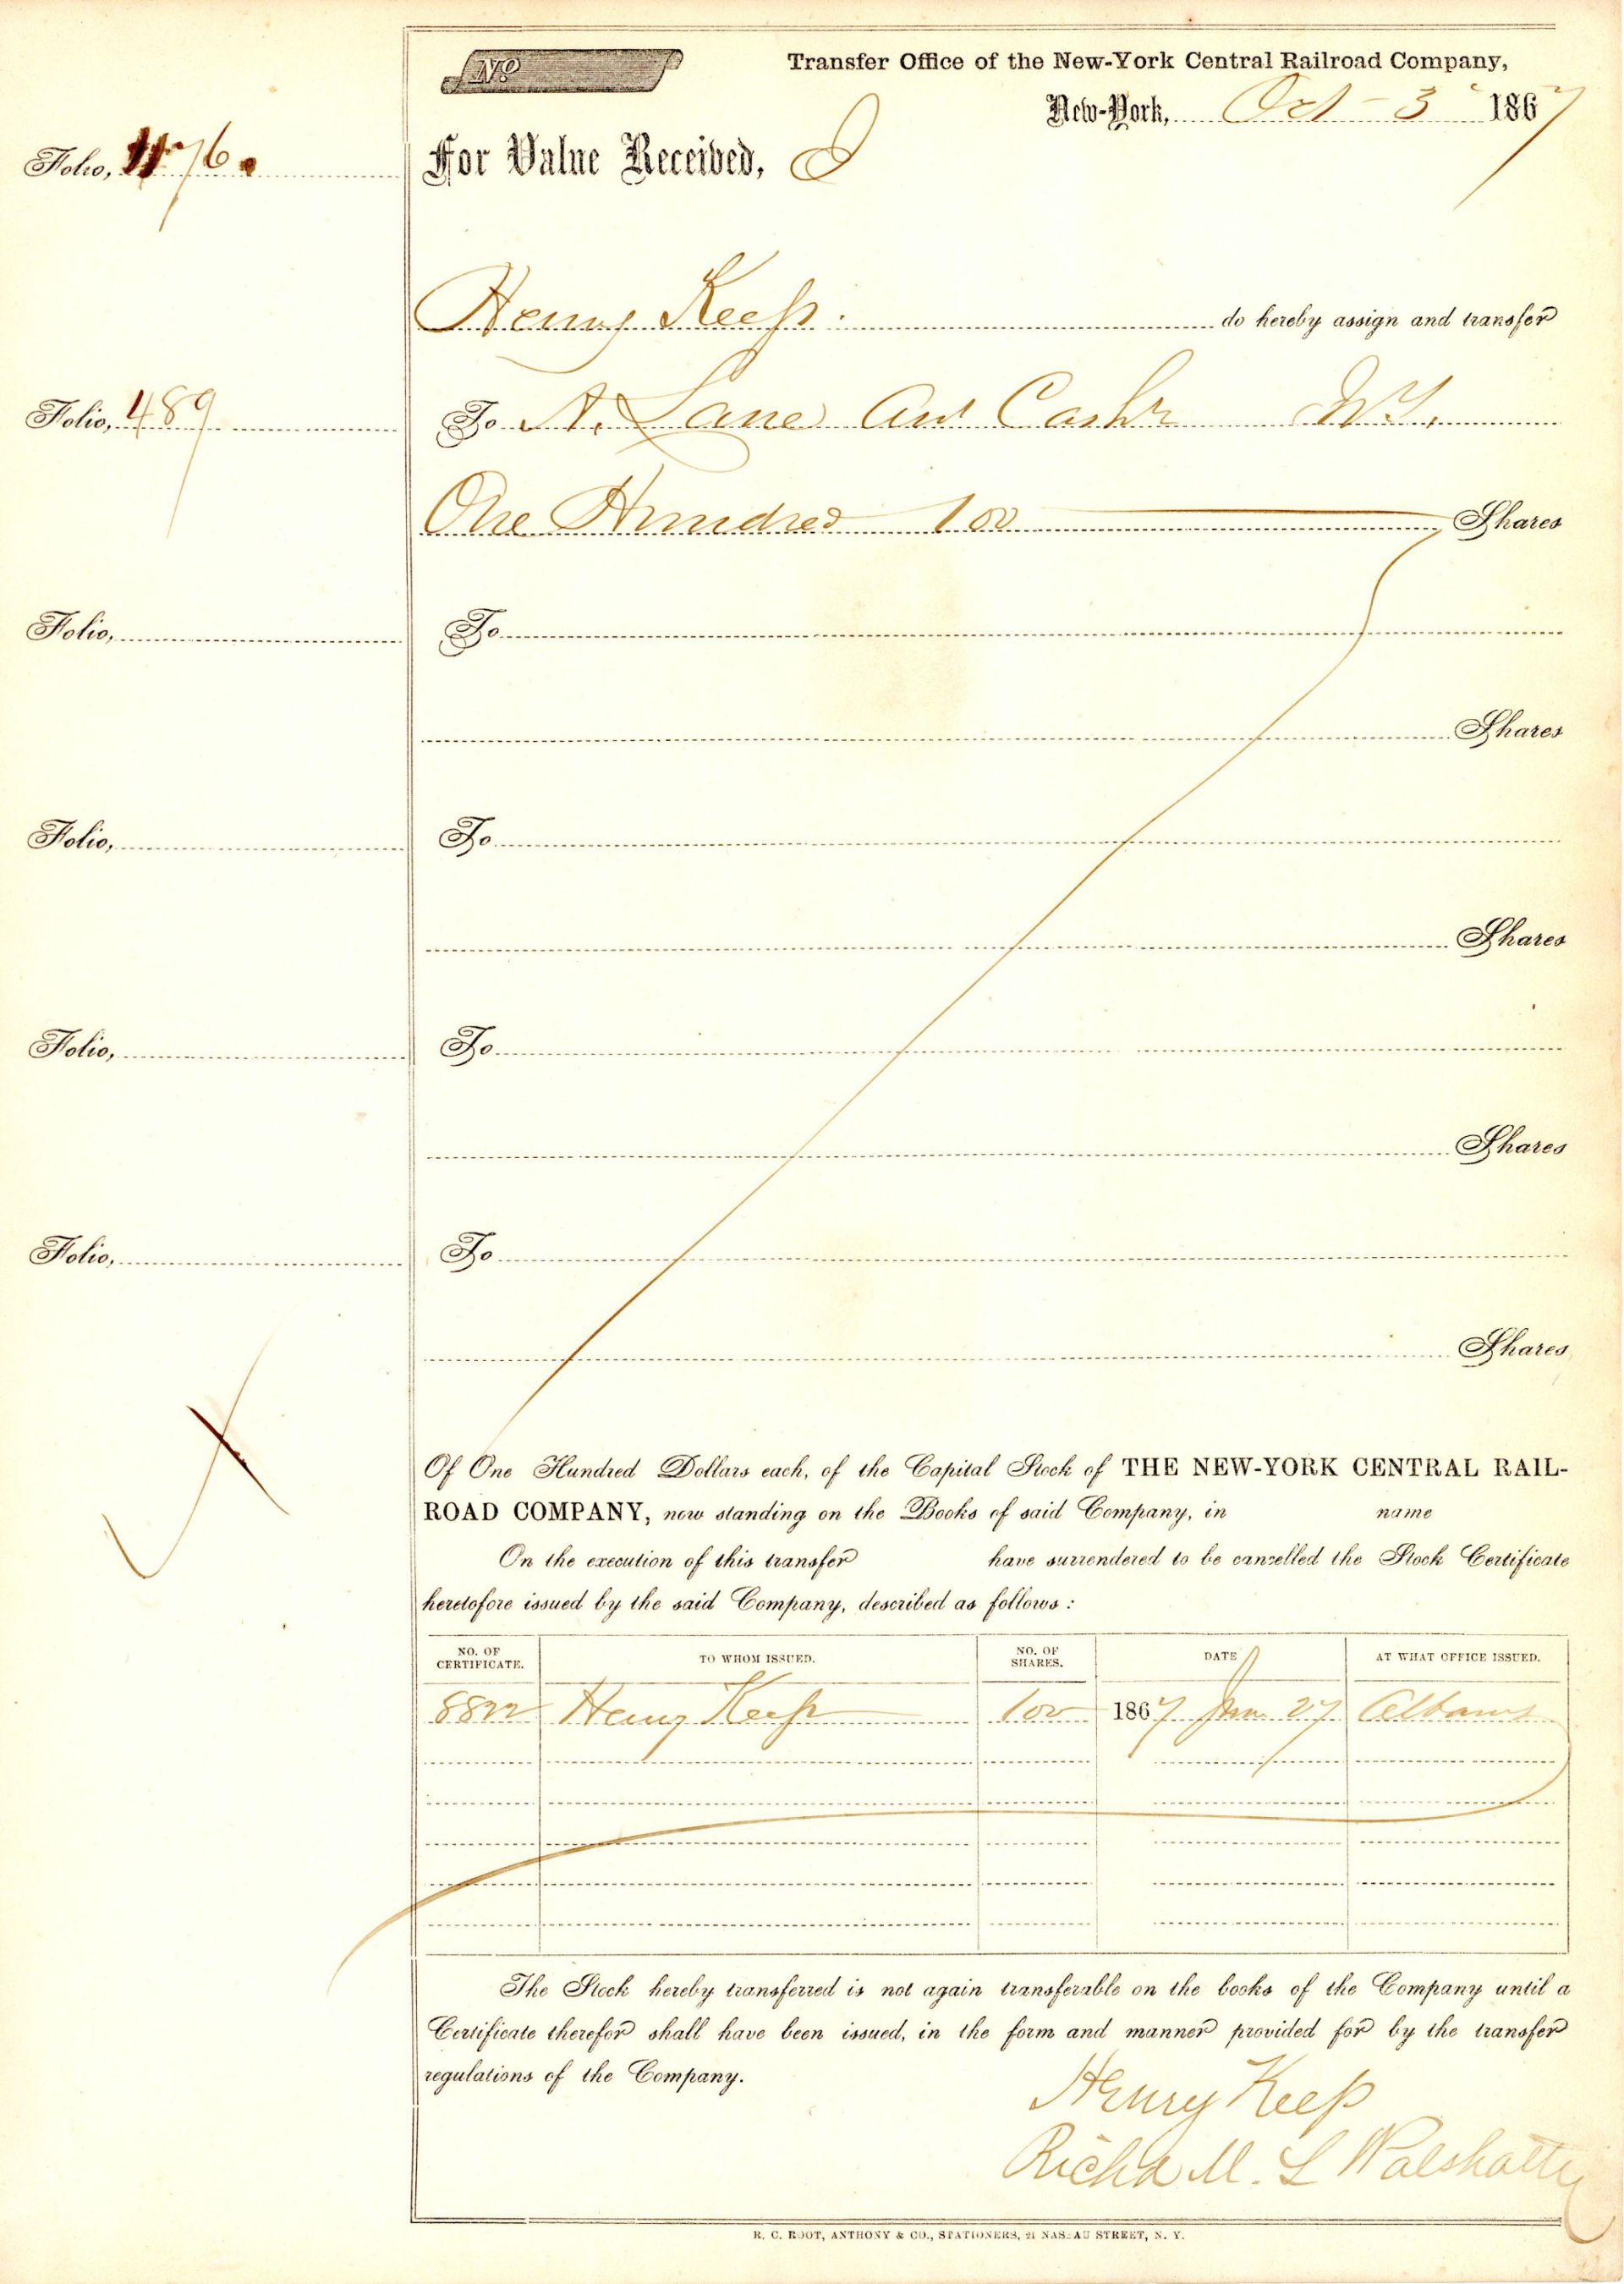 No
Transfer Office of the New-York Central Railroad Company,
New-York, Oct 3 1867
Folio, 1176
For Value Received, I
Henry Keep. do hereby assign and transfer
Folio, 489
To A. Lane Cashr N.Y.
One Hundred 100 Shares
Folio, To
Shares
Folio, To
Shares
Folio, To
Shares
Folio, To
Shares
Of One Hundred Dollars each, of the Capital Stock of THE NEW-YORK CENTRAL RAIL-
ROAD COMPANY, now standing on the Books of said Company, in name
On the execution of this transfer have surrendered to be cancelled the Stock Certificate
heretofore issued by the said Company, described as follows:
NO. OF CERTIFICATE. TO WHOM ISSUED. NO. OF SHARES. DATE AT WHAT OFFICE ISSUED.
8822 Henry Keep 100 1867 Jun 27 Albany
The Stock hereby transferred is not again transferable on the books of the Company until a
Certificate therefor shall have been issued, in the form and manner provided for by the transfer
regulations of the Company.
Henry Keep
Richd M. L Walsh atty
R. C. ROOT, ANTHONY & CO., STATIONERS, 21 NASSAU STREET, N. Y.